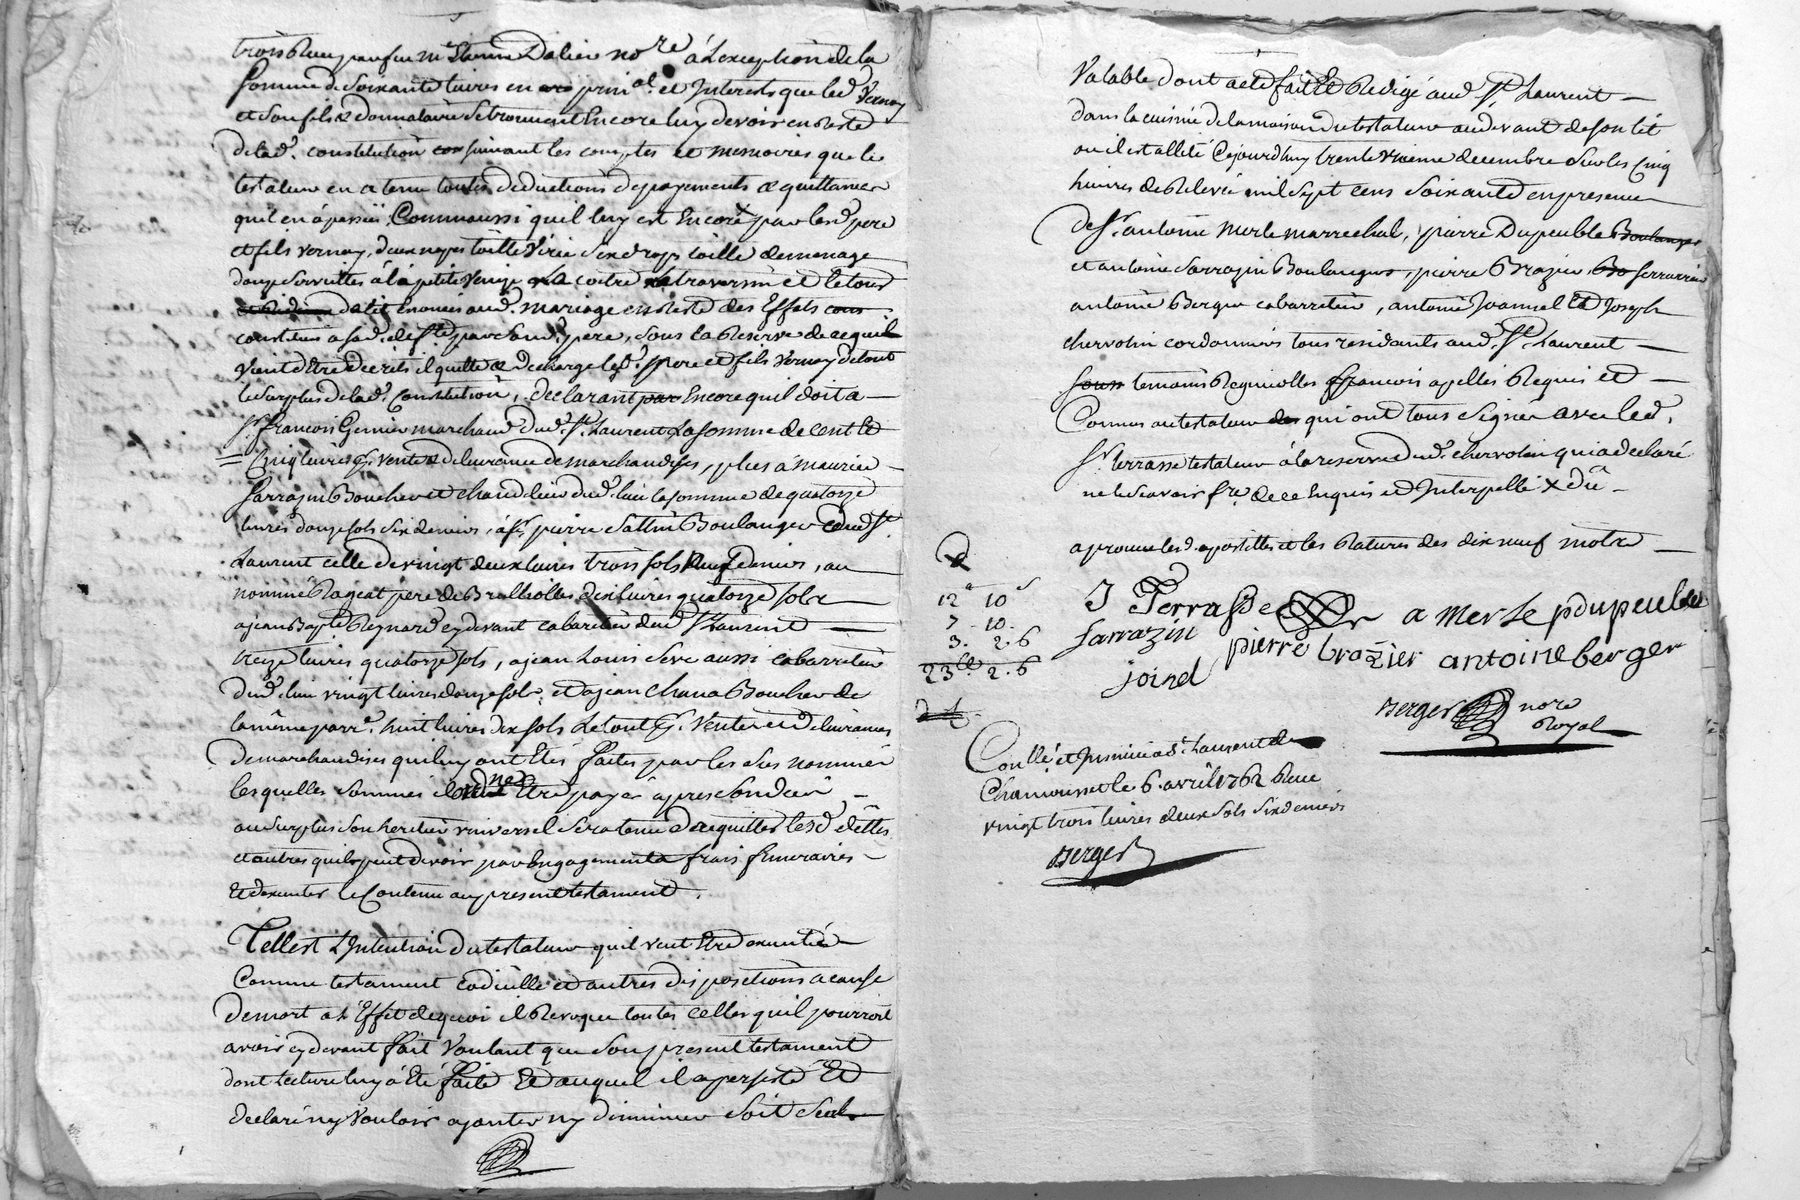 trois Reçu par feu me Etienne Dalier nore à Lexception de la
Somme de Soixante livres en principal et Interests que led Vernay
et Son fils & donnataire Se trouvent Encore luy devoir en Reste
de lad. constitution suivant les comptes et memoires que le
testateur en a tenu toutes deductions de payements & quittances
quil en à passéé, Comme aussi quil luy est Encore par lesd pere
et fils vernay, deux napes toille Six draps toille de menage
douze Serviettes à la petite Venize coitre traversin et le tour
de lit Enoncés aud. mariage en Reste des Effets
constitués a sad. par Sond. pere, Sous la Reserve de ce quil
Vient d'Etre décrits il quitte & decharge lesd. pere et fils Vernay de tout
le Surplus de lad. Constitution, declarant Encore quil doit a
Sr. francois Grenier marchand dud. St. Laurent La Somme de Cent
Cinq livres pr. vente & delivrance de marchandises, plus à maurice
Sarrazin Boucher et chandelier dud. lieu la Somme de quatorze
livres douze sols Six deniers, à Sr. pierre Boulanger dud St.
Laurent celle de vingt deux livres trois sols Neuf deniers, au
nommé Rageat pere de Brullioles dix livres quatorze sols
a jean Bapte Reynard cydevant cabaretier dud St Laurent
treize livres quatorze sols, a jean Louis Seve aussi cabarretier
dud. lieu vingt livres douze sols, et a jean Chana Boucher de
la même parre. huit livres dix sols Le tout pr. Vente et delivrances
de marchandises qui luy ont Etés faites par les Sus nommés
lesquelles Sommes il Etre payés après Son deces
au Surplus Son heritier universel Sera tenu d'acquitter lesd dettes
et autres quil peut devoir par Engagements frais funeraires
Et d'executer le Contenu au present testament.
Telle est L'Intention du testateur quil veut Etre executée
Comme testament codicille et autres dispositions a cause
de mort a L'Effet de quoi il Revoque toutes celles quil pourroit
avoir cy devant fait Voulant que Son present testament
dont Lecture luy à Eté faite Et auquel il a persisté Et
declaré n'y Vouloir ajouter ny diminuer Soit Seul
Valable dont acte fait Et Redigé aud St Laurent
dans la cuisine de la maison du testateur au devant de Son lit
ou il est allité Cejourdhuy trente uxieme decembre Sur les Cinq
heures de Relevée mil Sept cens Soixante en presence
de Sr. antoine merle marrechal, pierre Dupeuble Boulanger
et antoine Sarrazin Boulangers, pierre Brazier Serrurier
antoine Berger cabarretier, antoine Joannel Et Joseph
chervolin cordonniers tous residants aud. St Laurent
temoins Regnicolles francois apellés Requis et
Connus au testateur qui ont tous Signé avec led.
Sr. terrasse testateur à la reserve dud. chervolin qui a declaré
ne le Scavoir fre. de ce Enquis et Interpellé
aprouve lesd. apostilles et les Ratures des dix neuf mots
12# 10s
7 10
3. 2. 6
23# 2. 6
J Terrasse a merle p dupeuble
sarrazin pierre brazier antoine berger
joinel
Berger nore
Royal
Conllé et Insinué a St Laurent de
Chamousset le 6. avril 1762 Reçu
vingt trois livres deux sols Six deniers
Berger